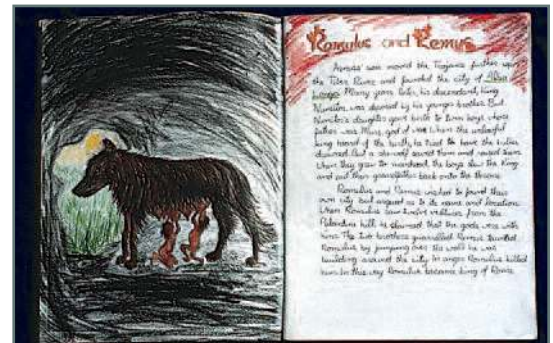 Romulus and Remus
Aeneas' son moved the Trojans further up
the Tiber River and founded the city of Alba
Longa. Many years later, his descendant, King
Numitor, was deposed by his younger brother. But
Numitor's daughter gave birth to twin boys whose
father was Mars, god of war. When the unlawful
king heard of the birth, he tried to have the babies
drowned. But a she-wolf saved them and raised them.
When they grew to manhood, the boys slew the King
and put their grandfather back onto the throne.
Romulus and Remus wished to found their
own city but argued as to its name and location.
When Romulus saw twelve vultures from the
Palantine hill, he claimed that the gods were with
him. The two brothers quarrelled. Remus taunted
Romulus by jumping over the wall he was
building around the city. In anger Romulus killed
him. In this way Romulus became king of Rome.